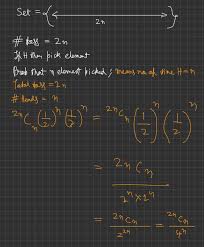 Set = { }
2n
# toss = 2n
If H then pick element
Prob that n element picked; means no. of time H = n
Total toss = 2n
# heads = n
²ⁿCₙ (1/2)ⁿ (1/2)ⁿ = ²ⁿCₙ (1/2)ⁿ (1/2)ⁿ
= ²ⁿCₙ / 2ⁿ × 2ⁿ
= ²ⁿCₙ / 2²ⁿ = ²ⁿCₙ / 4ⁿ